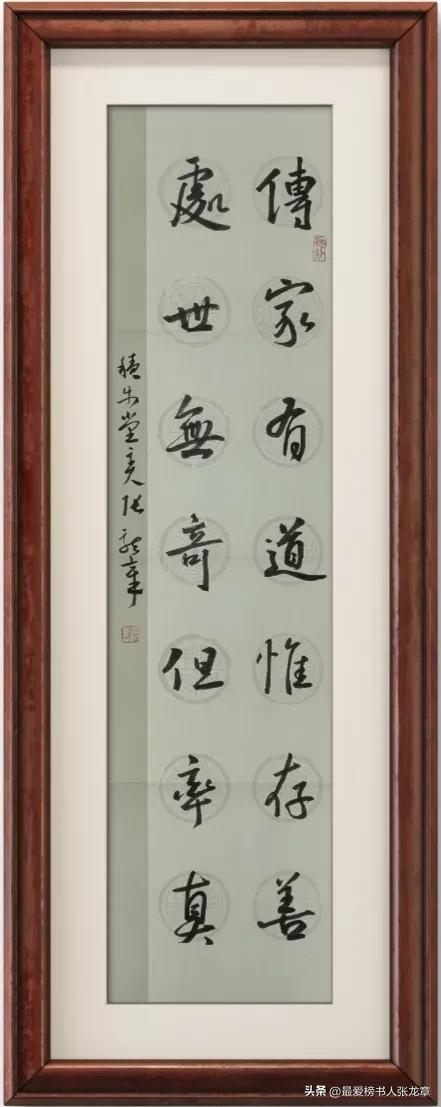 傳家有道惟存善
處世無奇但率真
堂主人张龍章
头条 @最爱榜书人张龙章